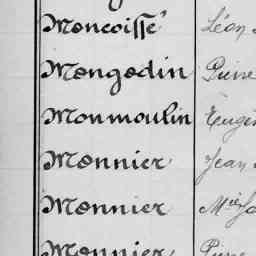 Moncoisse Léon
Mongodin Pierre
Monmoulin Eugè
Monnier Jean
Monnier
Monnier